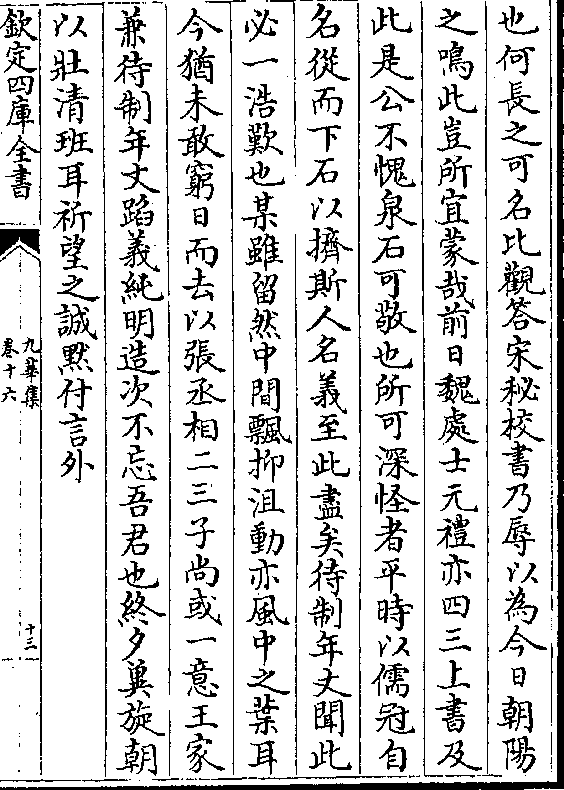 也何長之可名比觀答宋秘校書乃辱以為今日朝陽
之鳴此豈所宜蒙哉前日魏處士元禮亦四三上書及
此是公不愧泉石可敬也所可深怪者平時以儒冠自
名從而下石以擠斯人名義至此盡矣待制年丈聞此
必一浩歎也某雖留然中間飄抑沮動亦風中之葉耳
今猶未敢窮日而去以張丞相二三子尚或一意王家
兼待制年丈蹈義純明造次不忘吾君也終夕異旋朝
以壯清班耳祈望之誠黙付言外
欽定四庫全書
九華集
卷十六
十三